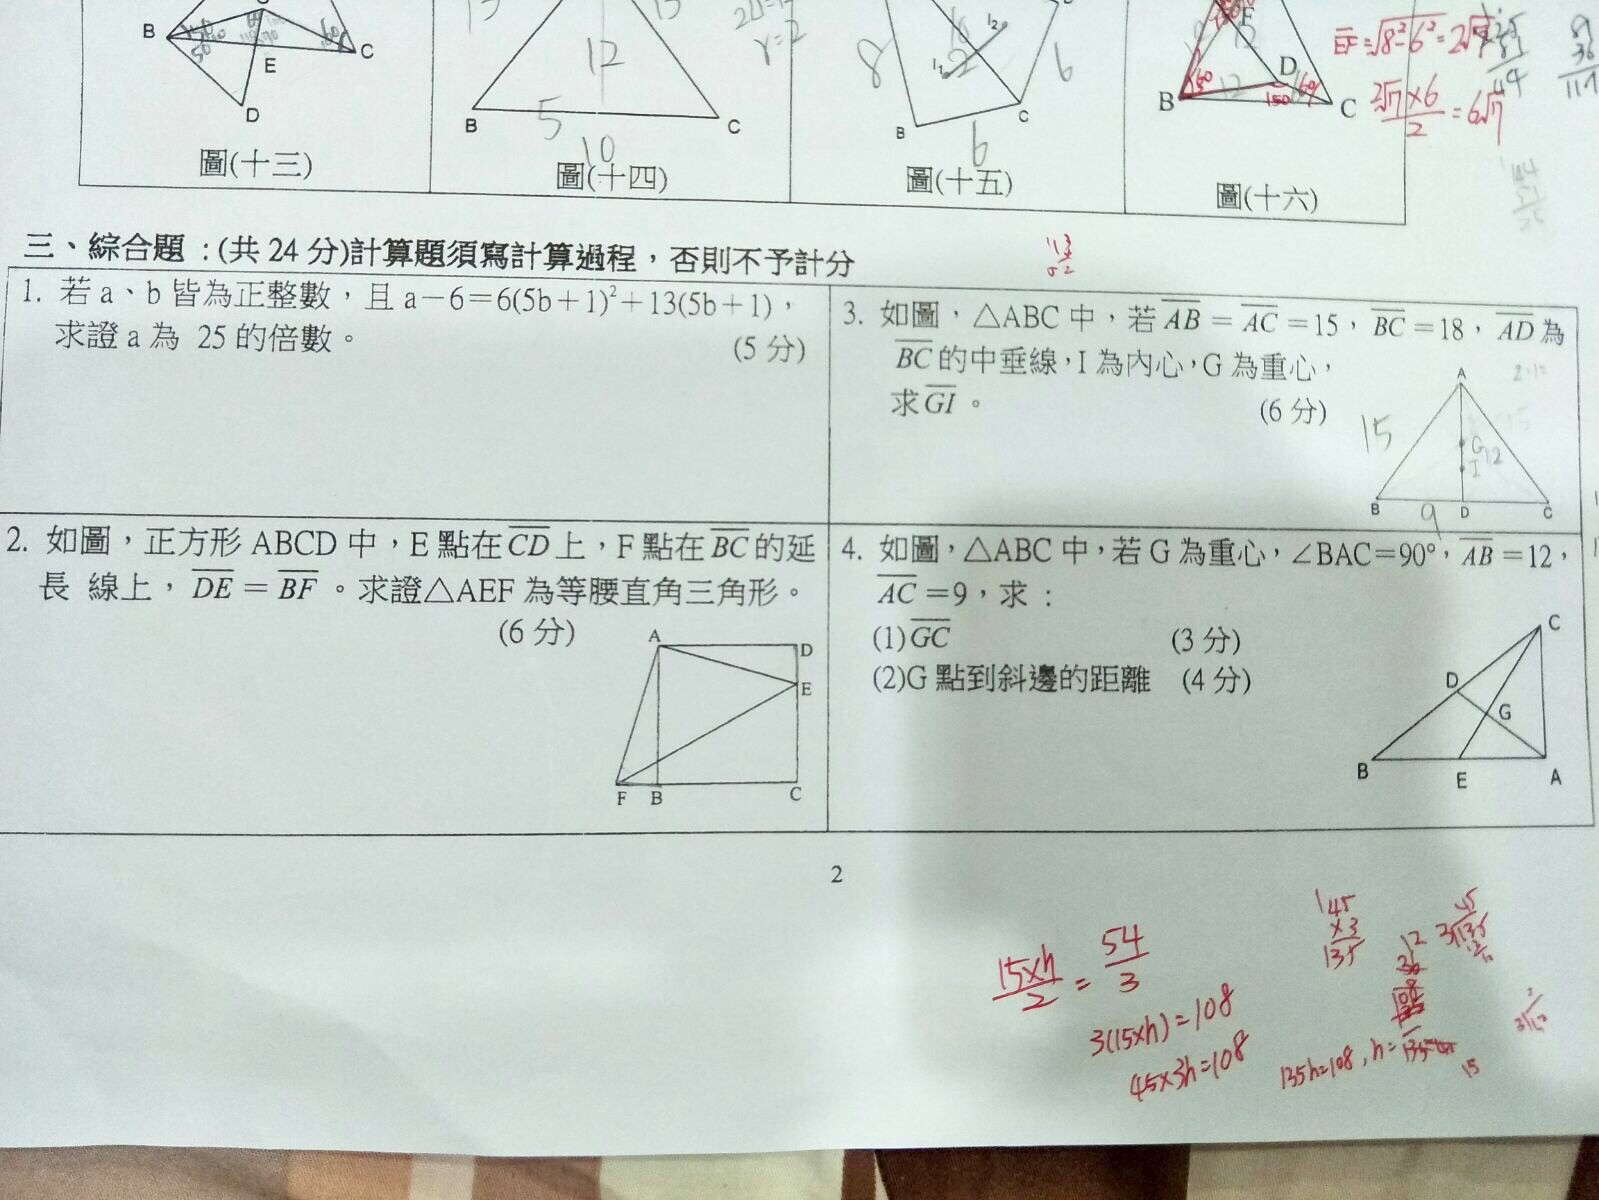 B
C
E
D
圖(十三)
13
13
12
B
5
C
10
圖(十四)
8
6
B
C
6
圖(十五)
F
12
D
B
12
150
C
圖(十六)
EF=√8²-6²=2√7
2√7×6/2=6√7
三、綜合題:(共24分)計算題須寫計算過程,否則不予計分
1. 若a、b皆為正整數,且a-6=6(5b+1)²+13(5b+1),
求證a為 25的倍數。
(5分)
3. 如圖,△ABC中,若AB=AC=15,BC=18,AD為
BC的中垂線,I為內心,G為重心,
求GI。 (6分)
A
15
G
12
I
B
9
D
C
2. 如圖,正方形ABCD中,E點在CD上,F點在BC的延
長 線上,DE=BF。求證△AEF為等腰直角三角形。
(6分)
A
D
E
F
B
C
4. 如圖,△ABC中,若G為重心,∠BAC=90°,AB=12,
AC=9,求:
(1)GC (3分)
(2)G點到斜邊的距離 (4分)
C
D
G
B
E
A
2
15×h/2=54/3
3(15×h)=108
45×3h=108
45
×3
135
135h=108,h=
15